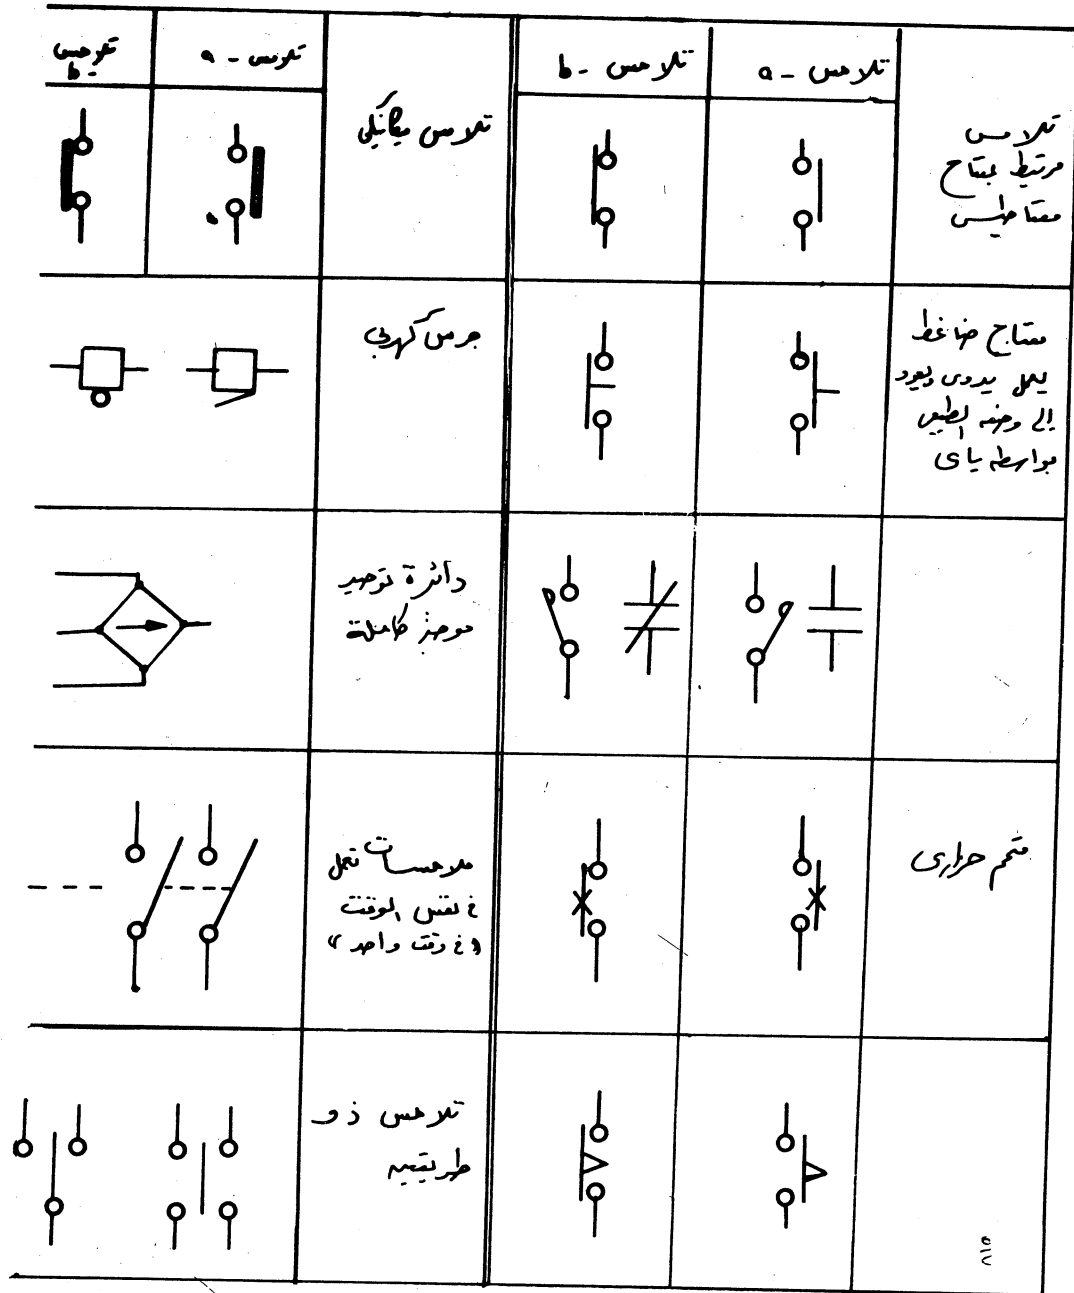 تلامس - a
تلامس - b
تلامس - a
تلامس
b -
تلامس
مرتبط بمفتاح
مغناطيسى
تلامس ميكانيكى
مفتاح ضاغط
يعمل يدوى ويعود
إلى وضعه الطبيعى
بواسطه ياى
جرس كهربى
دائرة توحيد
موجة كاملة
متمم حرارى
ملامسات تعمل
فى نفس الوقت
(فى وقت واحد)
تلامس ذو
طريقين